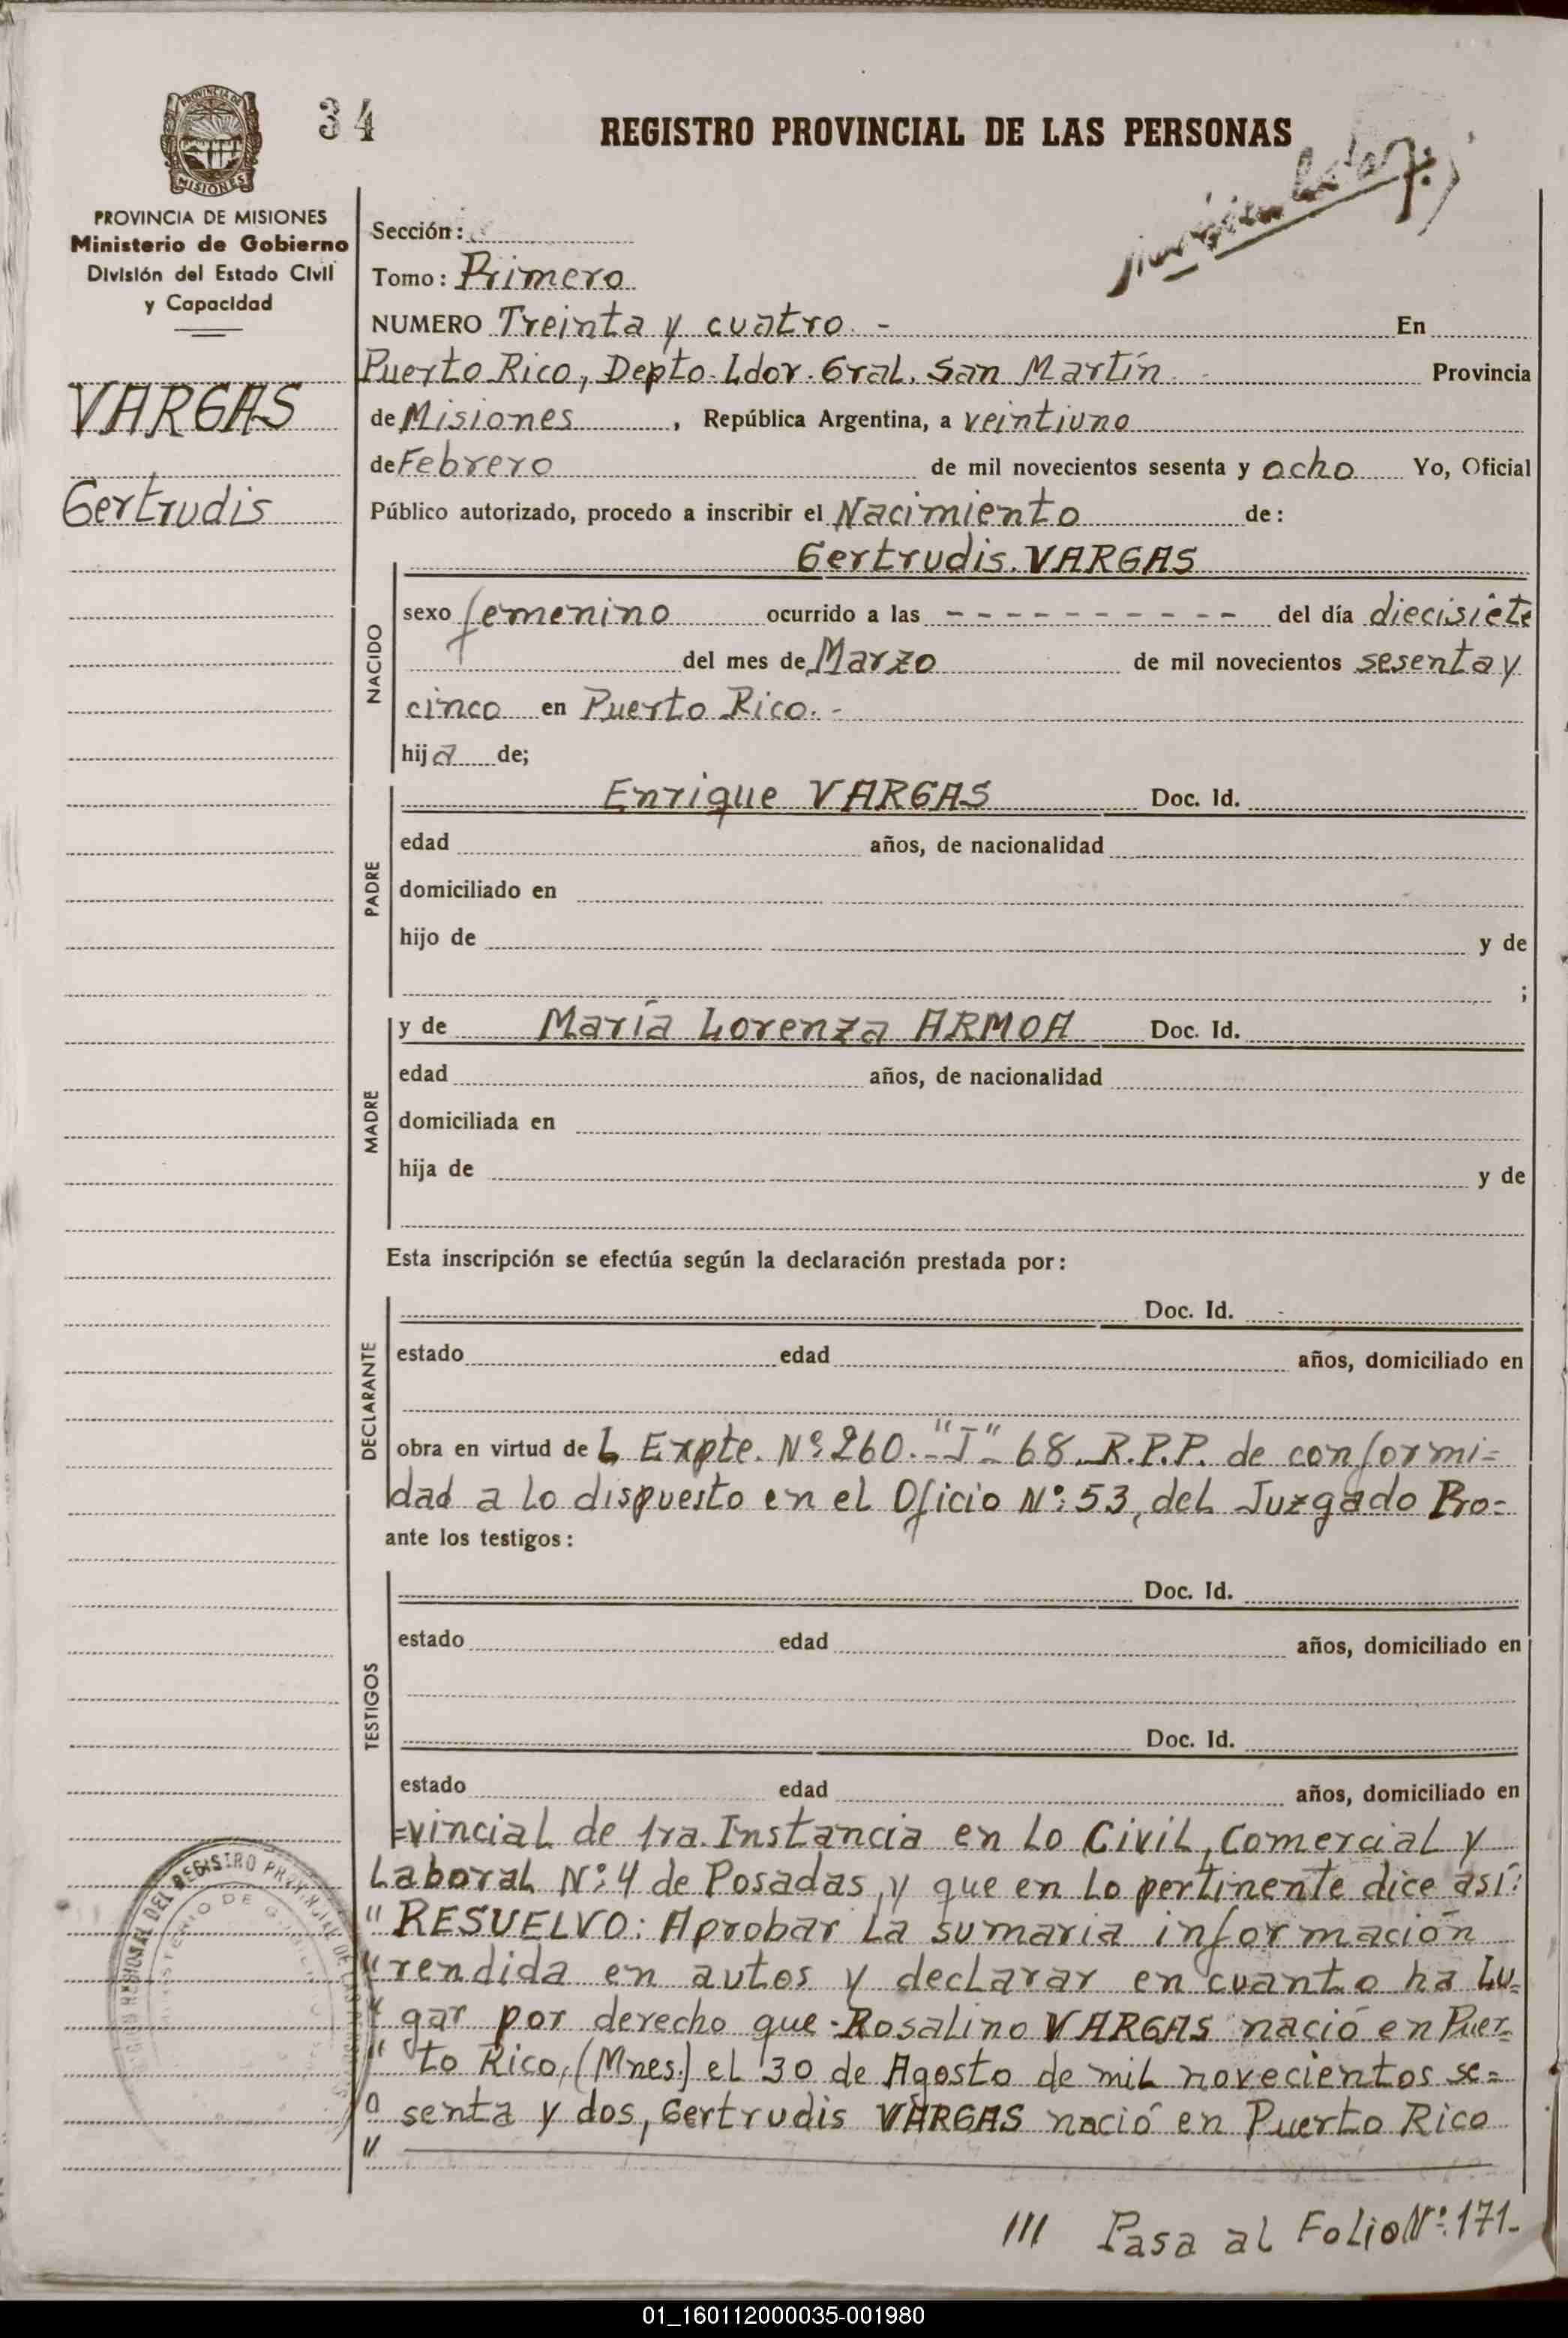 34
REGISTRO PROVINCIAL DE LAS PERSONAS
PROVINCIA DE
MISIONES
PROVINCIA DE MISIONES
Ministerio de Gobierno
División del Estado Civil
y Capacidad
VARGAS
Gertrudis
Sección:
Tomo: Primero
NUMERO Treinta y cuatro. - En
Puerto Rico, Depto. Ldor. Gral. San Martín. - Provincia
de Misiones, República Argentina, a veintiuno
de Febrero de mil novecientos sesenta y ocho Yo, Oficial
Público autorizado, procedo a inscribir el Nacimiento de:
Gertrudis. VARGAS
NACIDO
sexo femenino ocurrido a las - - - - - - - - - - - del día diecisiete
del mes de Marzo de mil novecientos sesenta y
cinco en Puerto Rico. -
hija de;
PADRE
Enrique VARGAS Doc. Id.
edad años, de nacionalidad
domiciliado en
hijo de y de
;
MADRE
y de María Lorenza ARMOA Doc. Id.
edad años, de nacionalidad
domiciliada en
hija de y de
Esta inscripción se efectúa según la declaración prestada por:
DECLARANTE
Doc. Id.
estado edad años, domiciliado en
obra en virtud de L Expte. Nº 260.-"J"- 68. R.P.P. de conformi=
dad a lo dispuesto en el Oficio Nº: 53, del Juzgado Pro=
ante los testigos:
TESTIGOS
Doc. Id.
estado edad años, domiciliado en
Doc. Id.
estado edad años, domiciliado en
=vincial de 1ra. Instancia en lo Civil, Comercial y
Laboral Nº: 4 de Posadas, y que en lo pertinente dice así:
" RESUELVO: Aprobar la sumaria información
" rendida en autos y declarar en cuanto ha lu=
" gar por derecho que Rosalino VARGAS nació en Puer=
" to Rico, (Mnes.) el 30 de Agosto de mil novecientos se=
" senta y dos, Gertrudis VARGAS nació en Puerto Rico
"
/// Pasa al Folio Nº: 171-
01_160112000035-001980